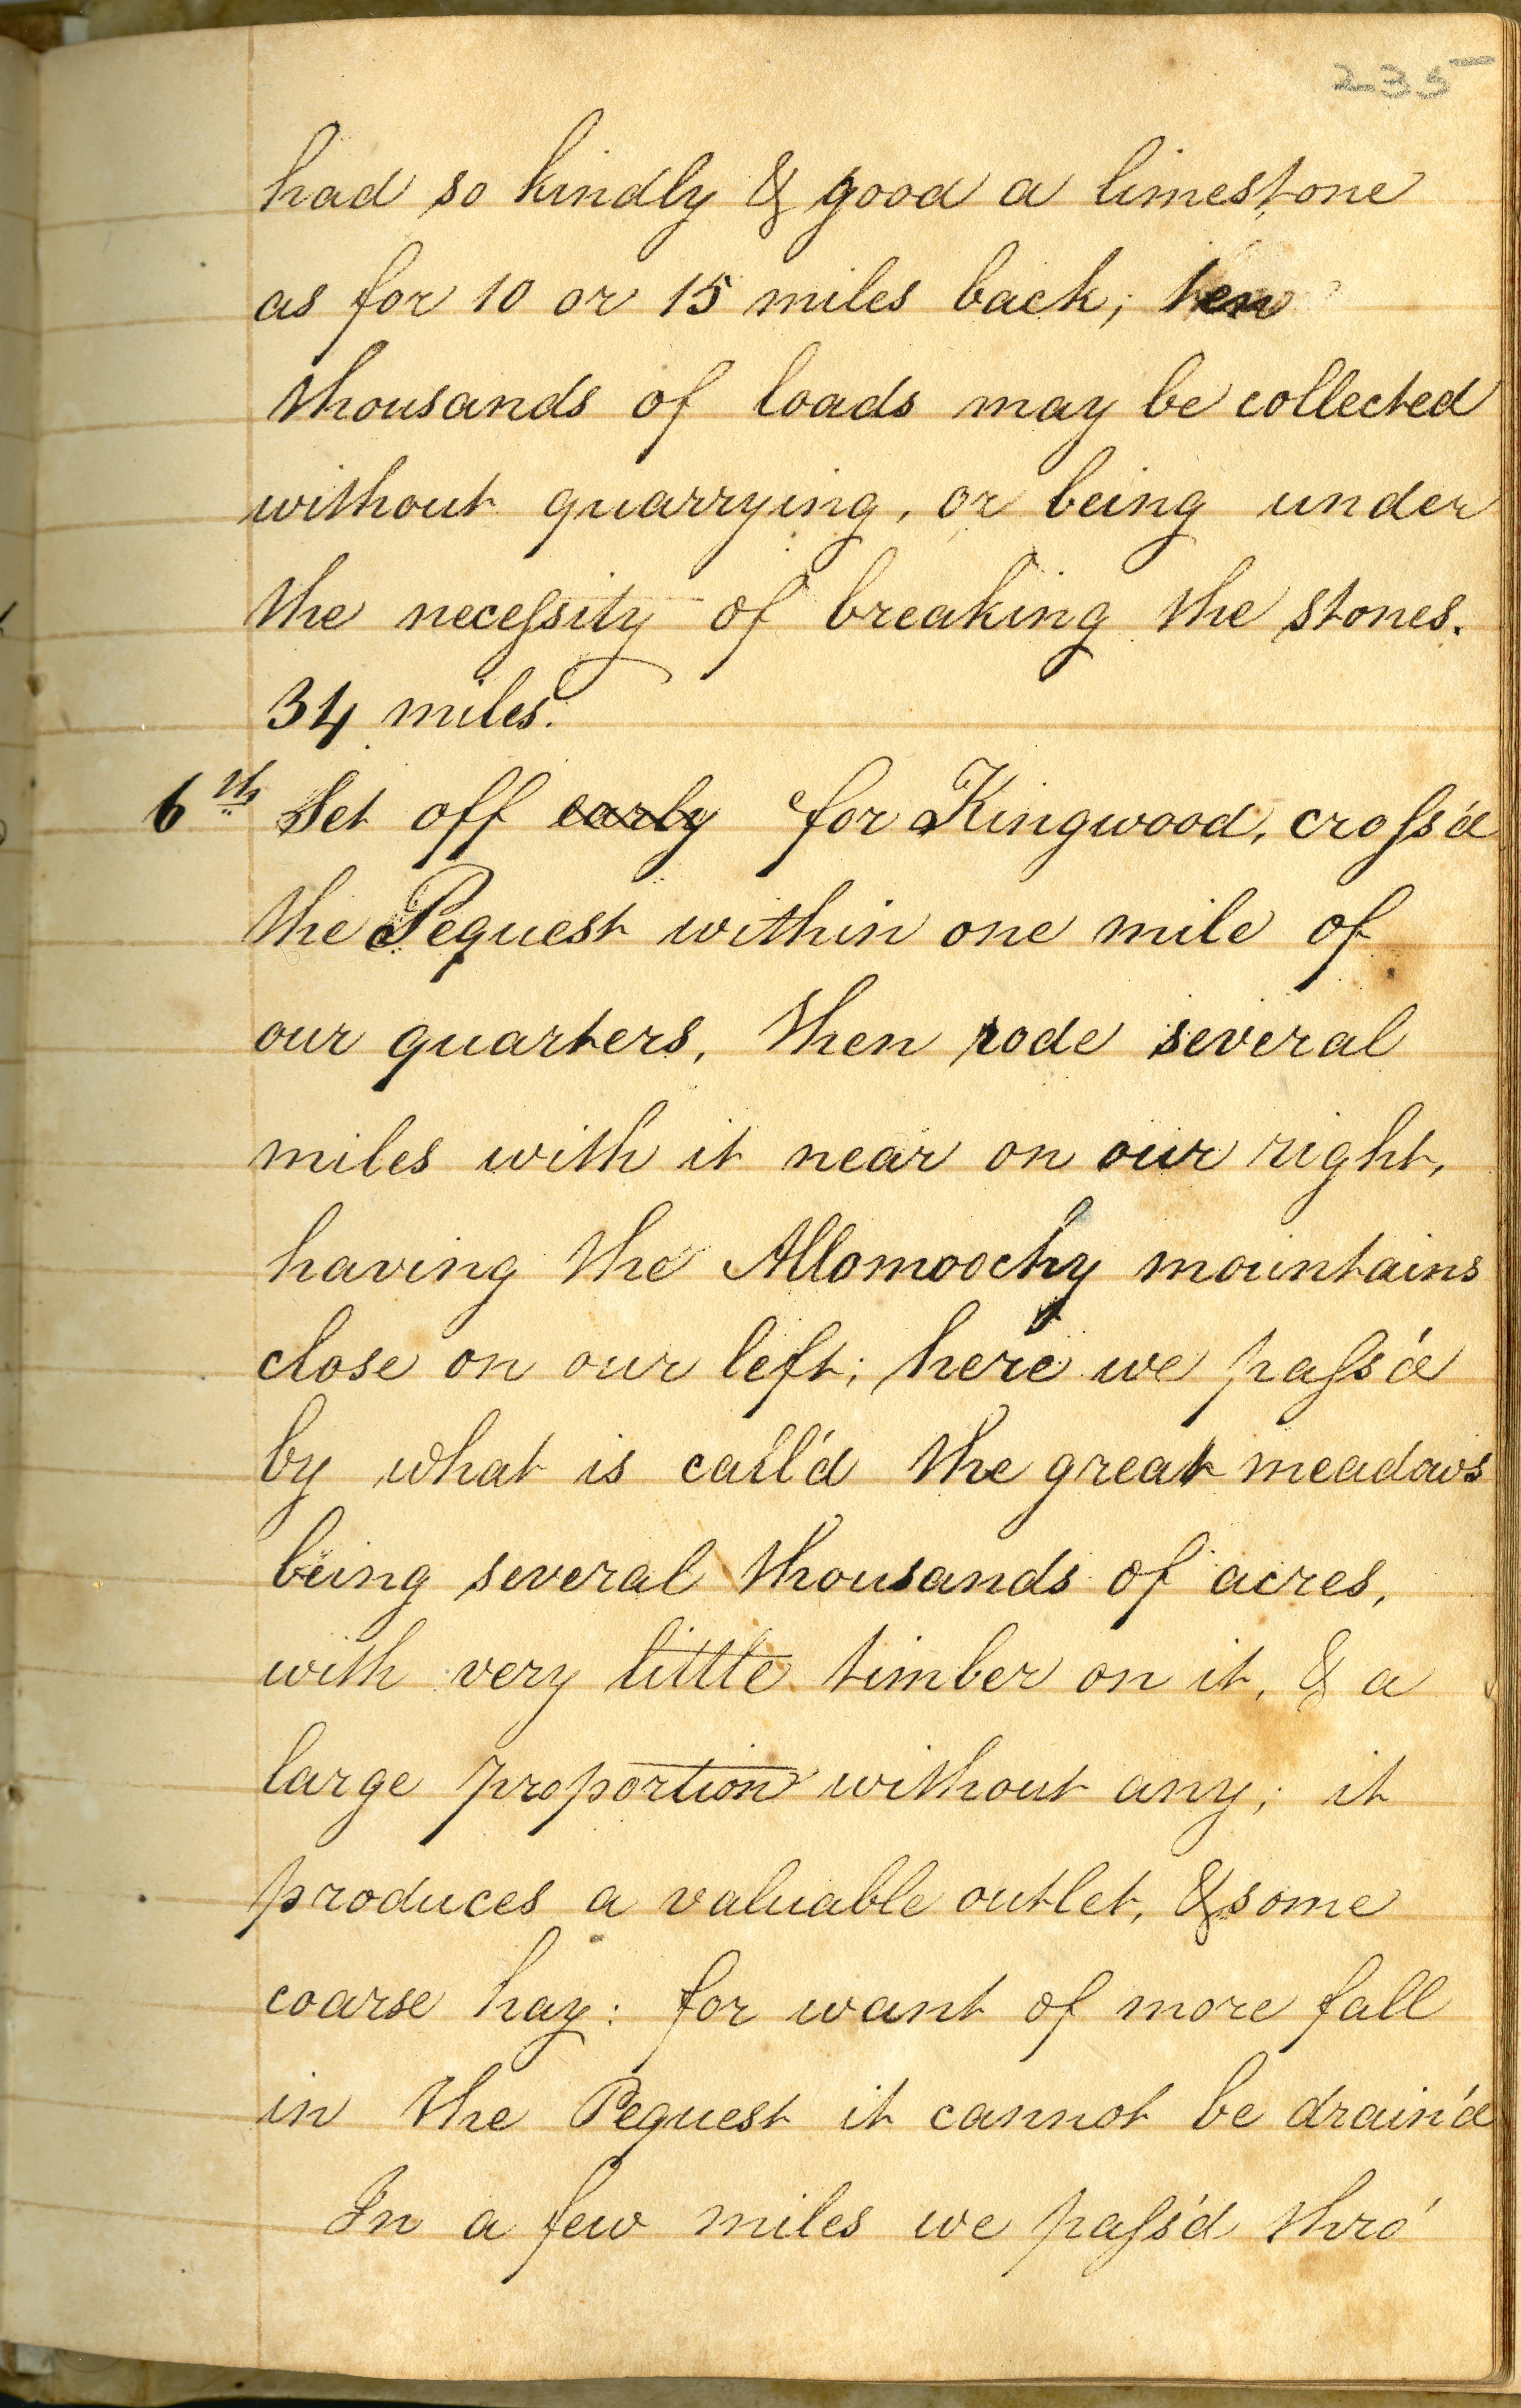 235
had so kindly & good a limestone
as for 10 or 15 miles back; ten
thousands of loads may be collected
without quarrying, or being under
the neceſsity of breaking the stones.
34 miles.
6th Set off early for Kingwood, croſs'd
the Pequest within one mile of
our quarters, then rode several
miles with it near on our right,
having the Allomoochy mountains
close on our left; here we paſs'd
by what is call'd the great meadows
being several thousands of acres,
with very little timber on it, & a
large proportion without any; it
produces a valuable outlet, & some
coarse hay: for want of more fall
in the Pequest it cannot be drain'd
In a few miles we paſs'd thro'